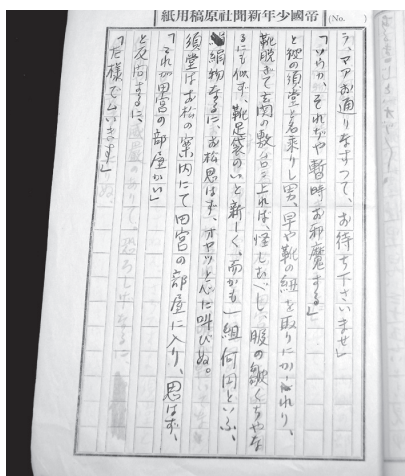 帝國少年新聞社原稿用紙
(No. )
ラ、マアお通りなすつて、お待ち下さいませ」
「さうか、それぢや暫時お邪魔する」
と 須堂と名乗りし男、早や靴の紐を取りにかゝれり、
靴脱ぎて玄関の敷台に上れば、怪しむべし、服の皺くちやな
るにも似ず、靴足袋のいと新しく、而かも一組何円といふ、
絹物なるに、お松思はず、オヤツと心に叫びぬ。
須堂はお松の案内にて田宮の部屋に入り、思はず、
「これが田宮の部屋かい」
と反問するに、
「左様でムいます」